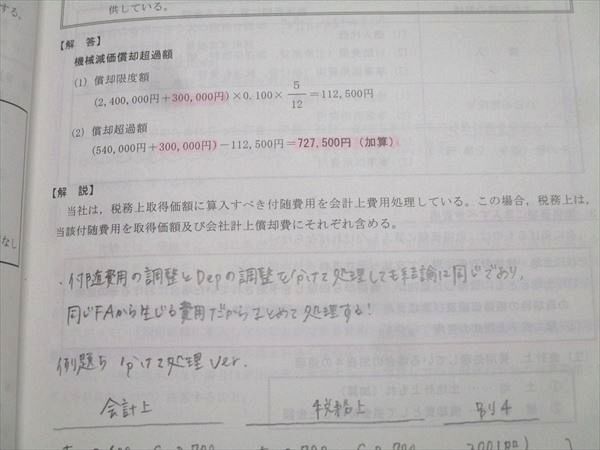 供している。
【解 答】
機械減価償却超過額
(1) 償却限度額
(2,400,000円+300,000円)×0.100×5/12=112,500円
(2) 償却超過額
(540,000円+300,000円)-112,500円=727,500円(加算)
【解 説】
当社は,税務上取得価額に算入すべき付随費用を会計上費用処理している。この場合,税務上は,
当該付随費用を取得価額及び会社計上償却費にそれぞれ含める。
・付随費用の調整とDepの調整を分けて処理しても結論は同じであり,
同じFAから生じる費用だからまとめて処理する!
例題5 分けて処理ver.
会計上 税務上 別4